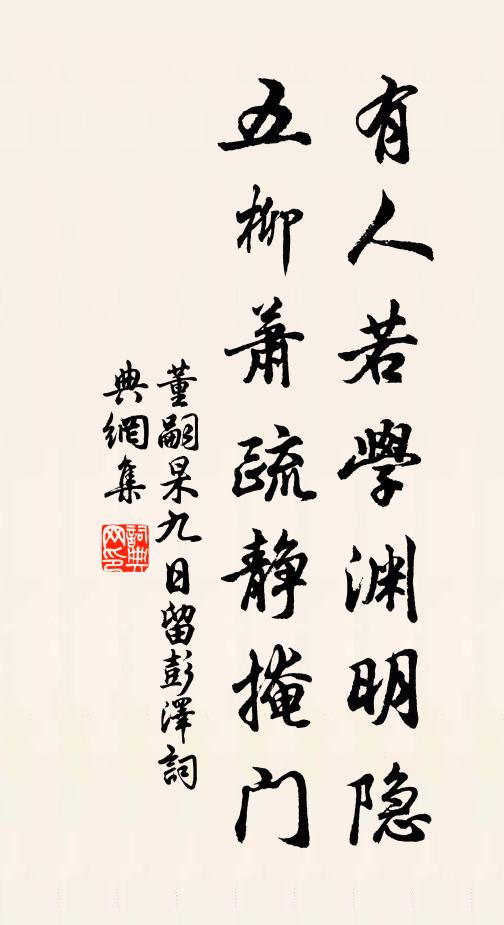 有人若學渊明隐
五柳蕭疏静掩门
董嗣杲九日留彭澤詞
典網集
詞典
网印